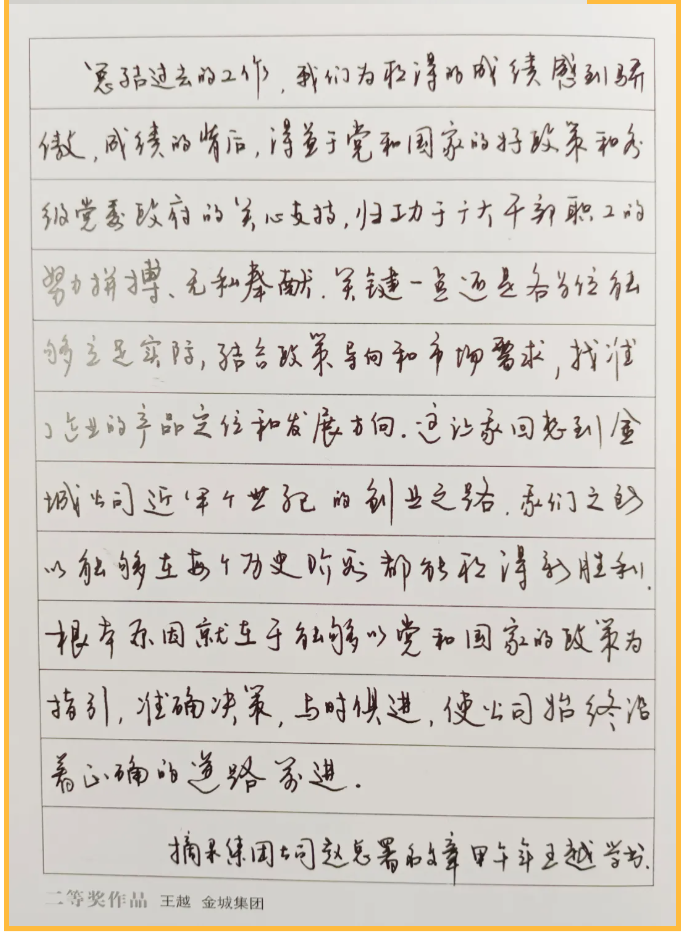 总结过去的工作，我们为取得的成绩感到骄
傲，成绩的背后，得益于党和国家的好政策和各
级党委政府的关心支持，归功于广大干部职工的
努力拼搏、无私奉献．关键一点还是各单位能
够立足实际，结合政策导向和市场需求，找准
了企业的产品定位和发展方向．这让我回想到金
城公司近半个世纪的创业之路．我们之所
以能够在每个历史阶段都能取得新胜利．
根本原因就在于能够以党和国家的政策为
指引，准确决策，与时俱进，使公司始终沿
着正确的道路前进．
摘录集团公司赵总署名文章甲午年王越学书．
二等奖作品 王越 金城集团